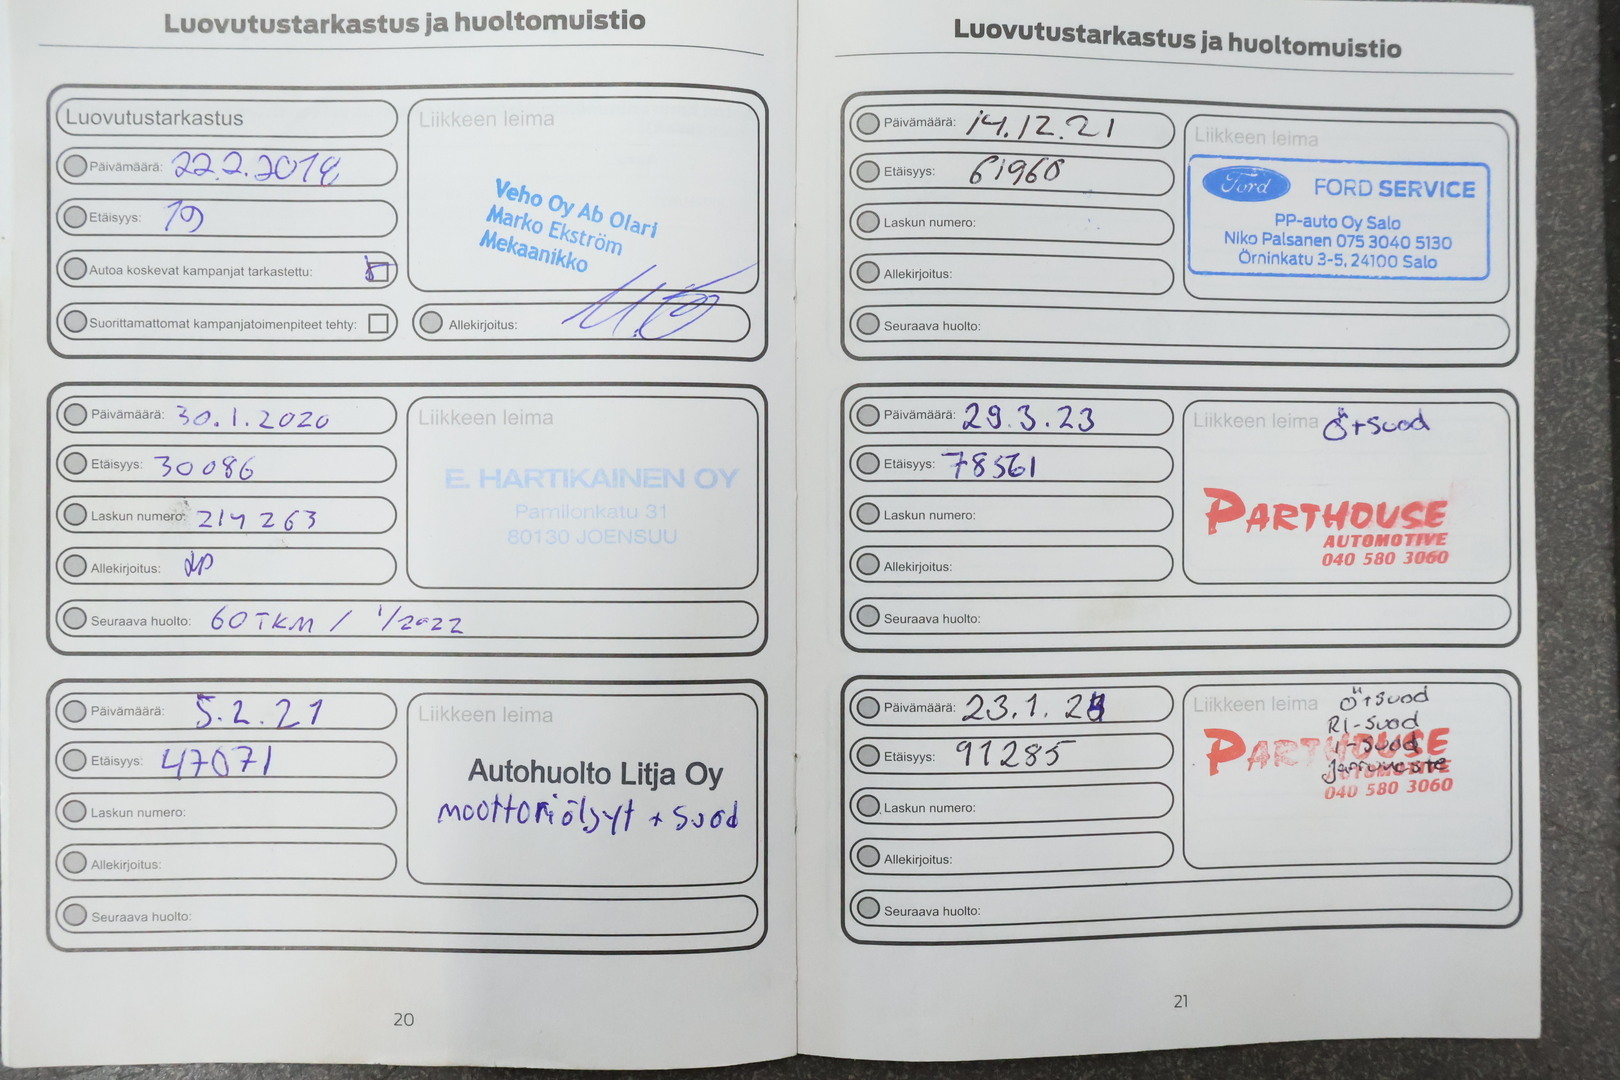 Luovutustarkastus ja huoltomuistio
Luovutustarkastus
Päivämäärä: 22.2.2018
Etäisyys: 19
Autoa koskevat kampanjat tarkastettu:
Suorittamattomat kampanjatoimenpiteet tehty:
Liikkeen leima
Veho Oy Ab Olari
Marko Ekström
Mekaanikko
Allekirjoitus:
Päivämäärä: 30.1.2020
Etäisyys: 30086
Laskun numero: 214263
Allekirjoitus:
Seuraava huolto: 60TKM / 1/2022
Liikkeen leima
E. HARTIKAINEN OY
Pamilonkatu 31
80130 JOENSUU
Päivämäärä: 5.2.21
Etäisyys: 47071
Laskun numero:
Allekirjoitus:
Seuraava huolto:
Liikkeen leima
Autohuolto Litja Oy
moottoriöljyt + suod
20
Luovutustarkastus ja huoltomuistio
Päivämäärä: 14.12.21
Etäisyys: 61960
Laskun numero:
Allekirjoitus:
Seuraava huolto:
Liikkeen leima
Ford FORD SERVICE
PP-auto Oy Salo
Niko Palsanen 075 3040 5130
Örninkatu 3-5, 24100 Salo
Päivämäärä: 29.3.23
Etäisyys: 78561
Laskun numero:
Allekirjoitus:
Seuraava huolto:
Liikkeen leima Ö+suod
PARTHOUSE
AUTOMOTIVE
040 580 3060
Päivämäärä: 23.1.24
Etäisyys: 91285
Laskun numero:
Allekirjoitus:
Seuraava huolto:
Liikkeen leima Ö+suod
RI-suod
I-suod
Jarruneste
PARTHOUSE
AUTOMOTIVE
040 580 3060
21